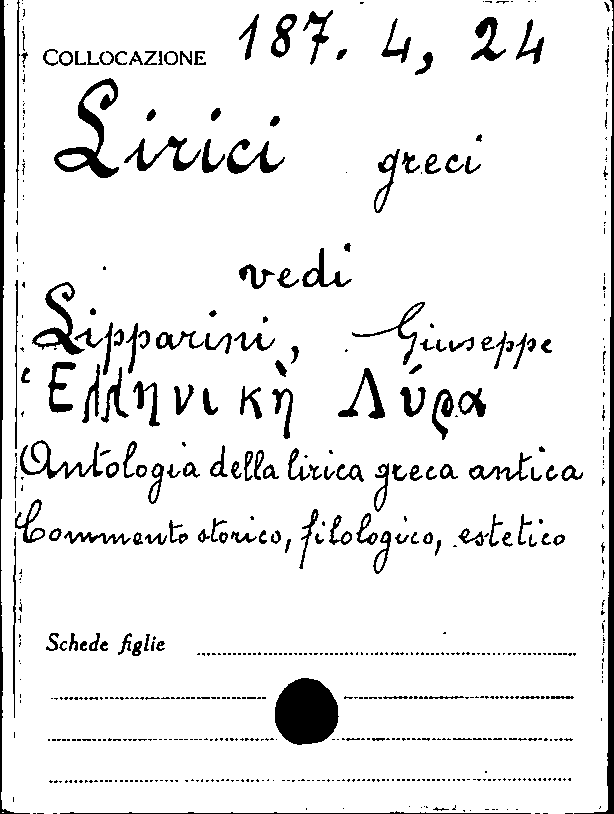 COLLOCAZIONE 187. 4, 24
Lirici greci
vedi
Lipparini, Giuseppe
Ἑλληνικὴ Λύρα
Antologia della lirica greca antica
Commento storico, filologico, estetico
Schede figlie